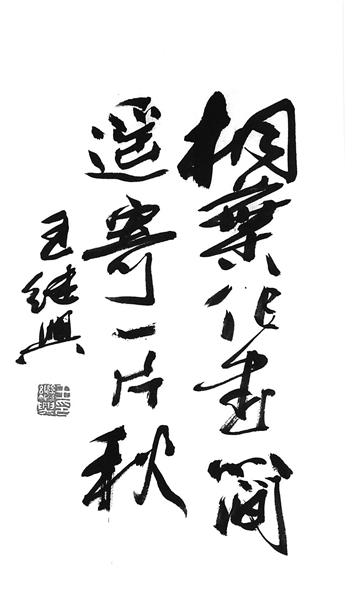 桐葉作書簡
遥寄一片秋
王继興